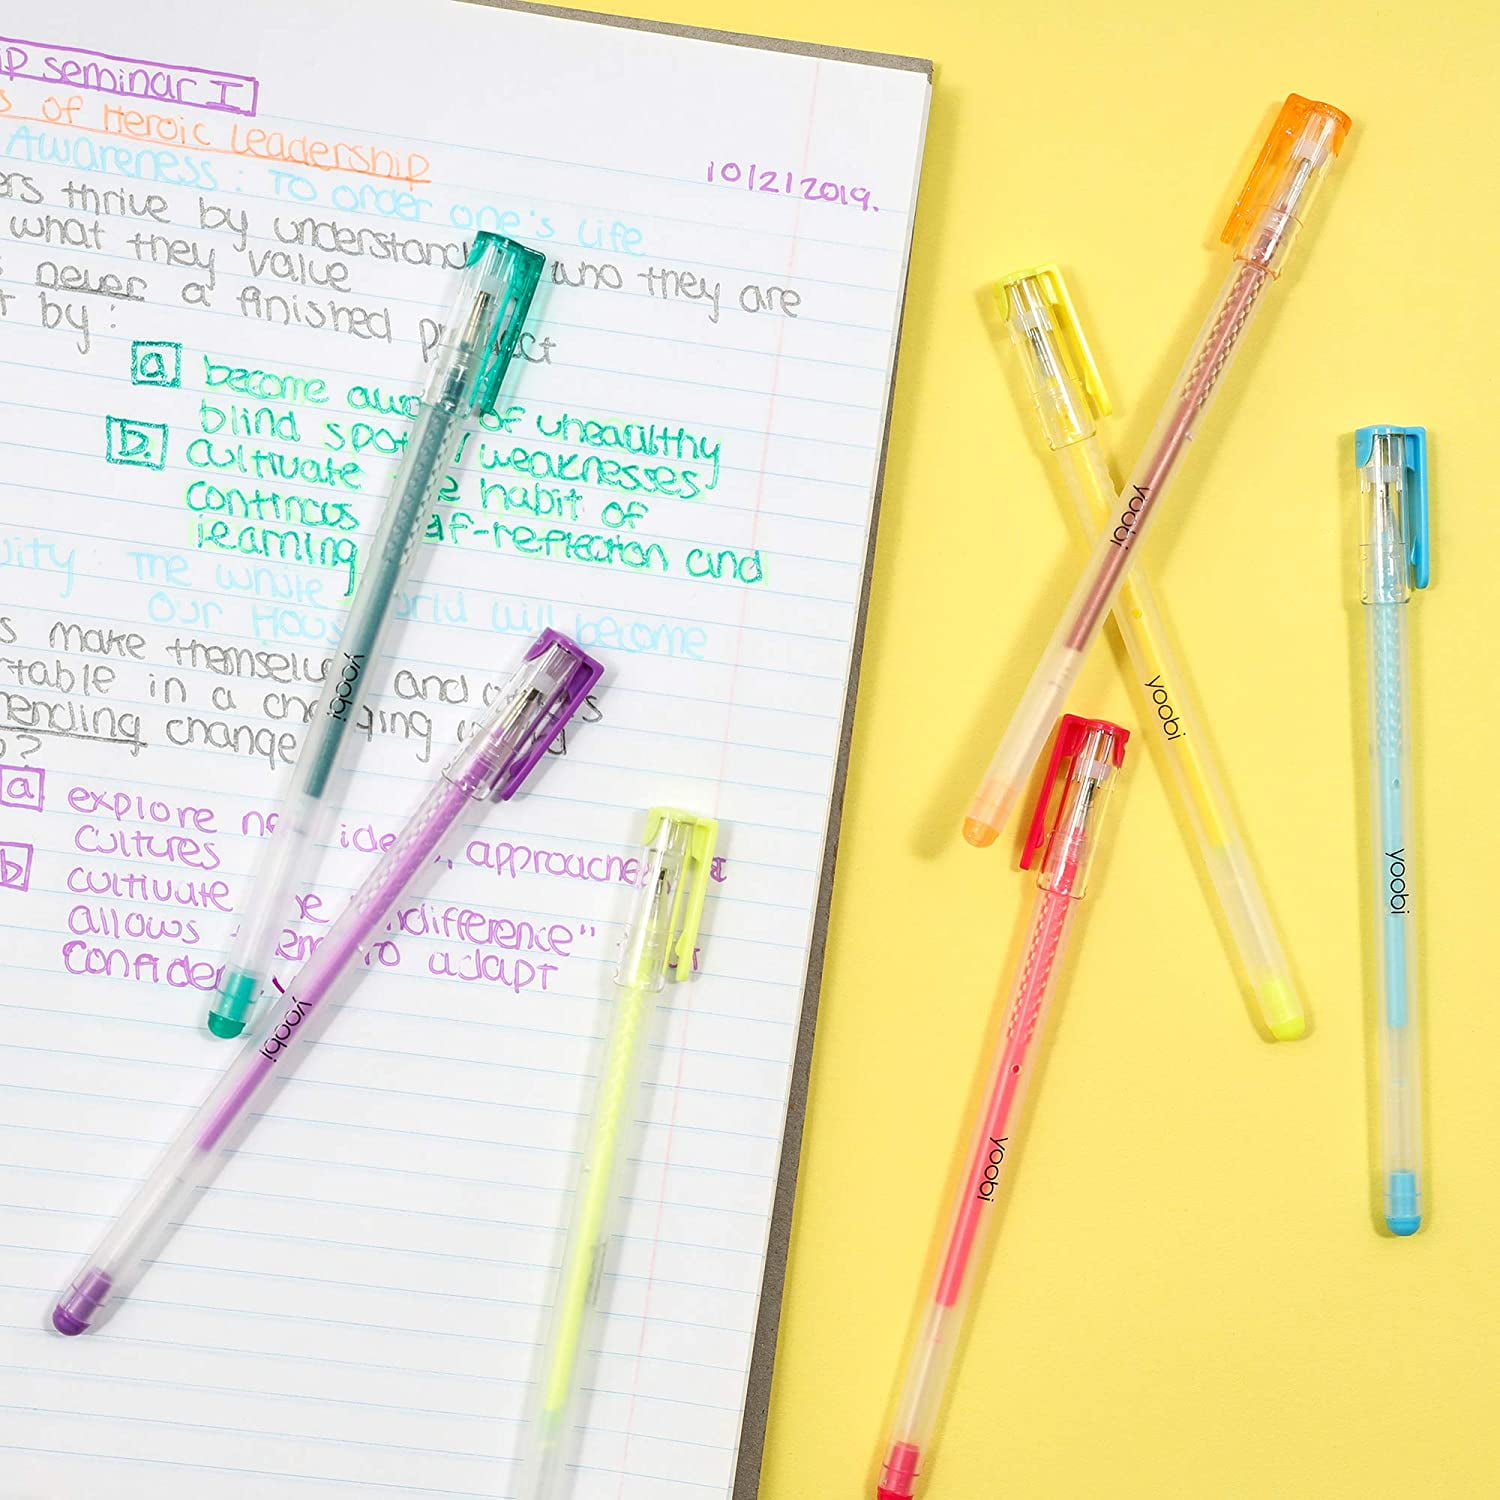 ip seminar I
s of Heroic Leadership
10/2/2019.
Awareness: To order one's life
ers thrive by understand who they are
what they value
s never a finished product
t by:
a become aware of unheaulthy
blind spots / weaknesses
b. cultivate the habit of
continous
learning self-reflection and
uity: The whole world will become
our House
s make themselves and others
rtable in a changing world
mending change
p?
a explore new ideas, approaches, &
cultures
b cultivate the "indifference" that
allows them to adapt
confidently
yoobi
yoobi
yoobi
yoobi
yoobi
yoobi